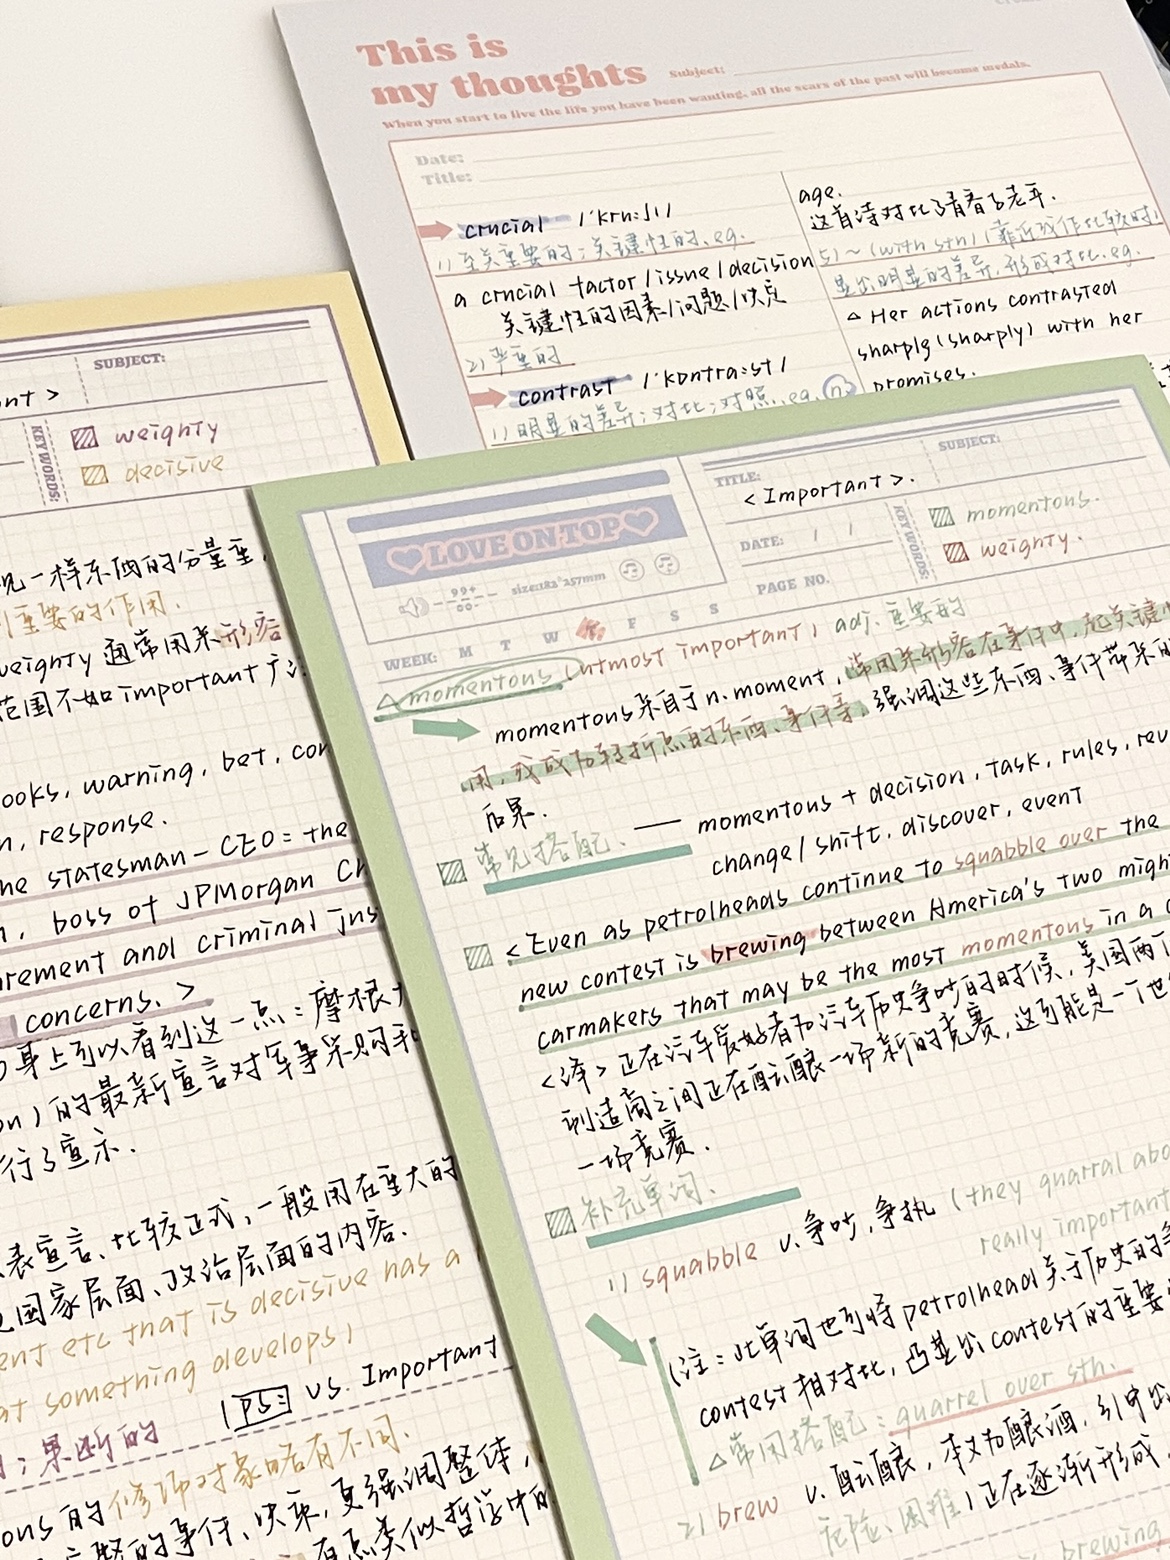 This is
my thoughts
Subject:
When you start to live the life you have been wanting, all the scars of the past will become medals.
Date:
Title:
crucial /'kru:ʃl/
1) 至关重要的;关键性的. eg.
a crucial factor/issue/decision
关键性的因素/问题/决定
2) 严重的
contrast /'kɒntra:st/
1) 明显的差异;对比;对照. eg. n.
age.
这首诗对比了青春与老年.
5) ~ (with sth) (靠近或作比较时)
显出明显的差异,形成对比. eg.
△ Her actions contrasted
sharply(sharply) with her
promises.
SUBJECT:
ant >
KEY WORDS:
weighty
decisive
一样东西的分量重,
重要的作用.
weighty 通常用来形容
范围不如important 广
ooks, warning, bet, con
n, response.
he statesman-CEO: the
, boss of JPMorgan Ch
urement and criminal jus
concerns. >
身上可以看到这一点:摩根大
on)的最新宣言对军事采购和
行了宣示.
表宣言、比较正式,一般用在重大的
国家层面、政治层面的内容.
ent etc that is decisive has a
at something develops)
;果断的
PS: vs. Important
ous 的修饰对象略有不同.
的事件、决策,更强调整体,
有点类似哲学中的
LOVE ON TOP
99+
size:182*257mm
WEEK: M T W T F S S
TITLE:
<Important>.
SUBJECT:
DATE: / /
PAGE NO.
KEY WORDS:
momentous.
weighty.
△ momentous (utmost important) adj. 重要的
momentous 来自于 n. moment, 常用来形容在事件中,起关键
用,或成为转折点的东西、事件等,强调这些东西、事件带来的
后果.
常见搭配. — momentous + decision, task, rules, rev
change/shift, discover, event
<Even as petrolheads continue to squabble over the
new contest is brewing between America's two might
carmakers that may be the most momentous in a c
<译> 正在汽车爱好者和汽车历史争吵的时候,美国两
制造商之间正在酝酿一场新的竞赛,这可能是一个世
一场竞赛.
补充单词.
1) squabble v. 争吵,争执 (they quarral abo
really important
(注:此单词也可将 petrolhead 关于历史的争
contest 相对比,凸显出 contest 的重要
△常用搭配:quarrel over sth.
2) brew v. 酝酿,本义为酿酒,引申出
危险、困难)正在逐渐形成
brewing